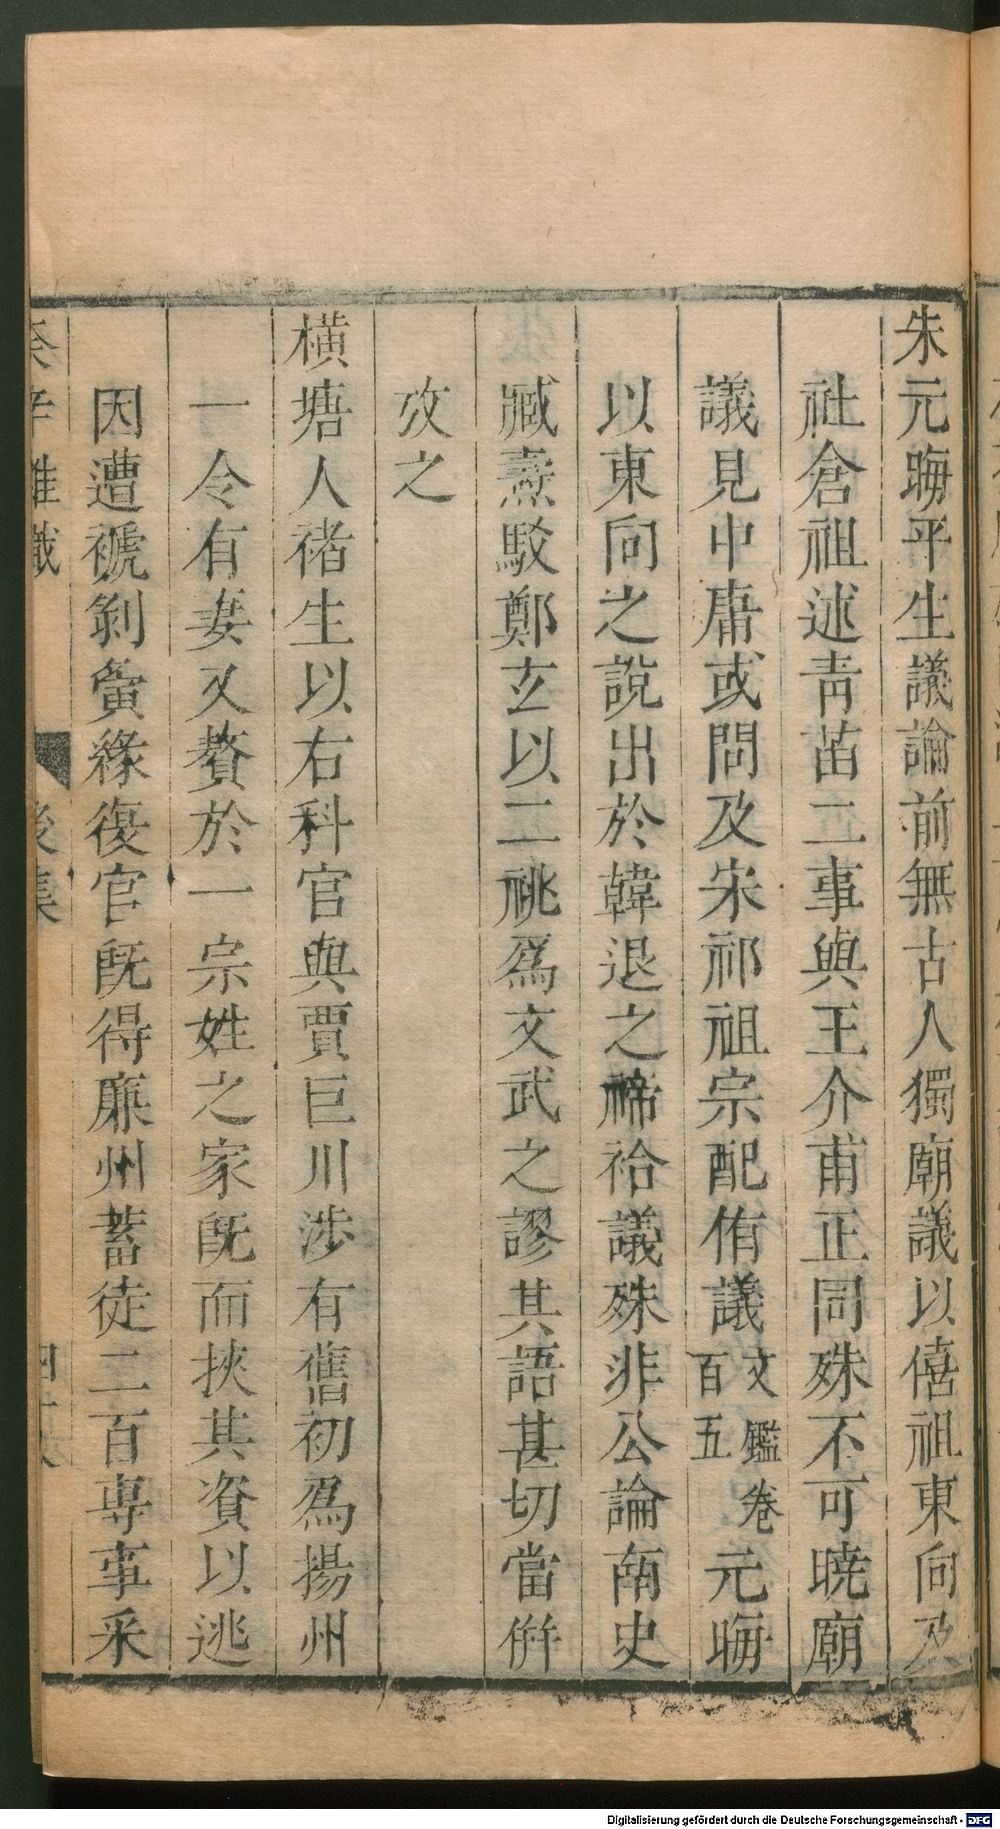 朱元晦平生議論前無古人獨廟議以僖祖東向及
社倉祖述青苗二事與王介甫正同殊不可曉廟
議見中庸或問及宋祁祖宗配侑議文鑑卷百五元晦
以東向之說出於韓退之禘祫議殊非公論南史
臧燾駁鄭玄以二祧爲文武之謬其語甚切當倂
攷之
橫塘人褚生以右科官與賈巨川涉有舊初爲揚州
一令有妻又贅於一宗姓之家旣而挾其資以逃
因遭褫剝夤緣復官旣得廉州蓄徒二百專事釆
癸辛雜識
後集
Digitalisierung gefördert durch die Deutsche Forschungsgemeinschaft - DFG